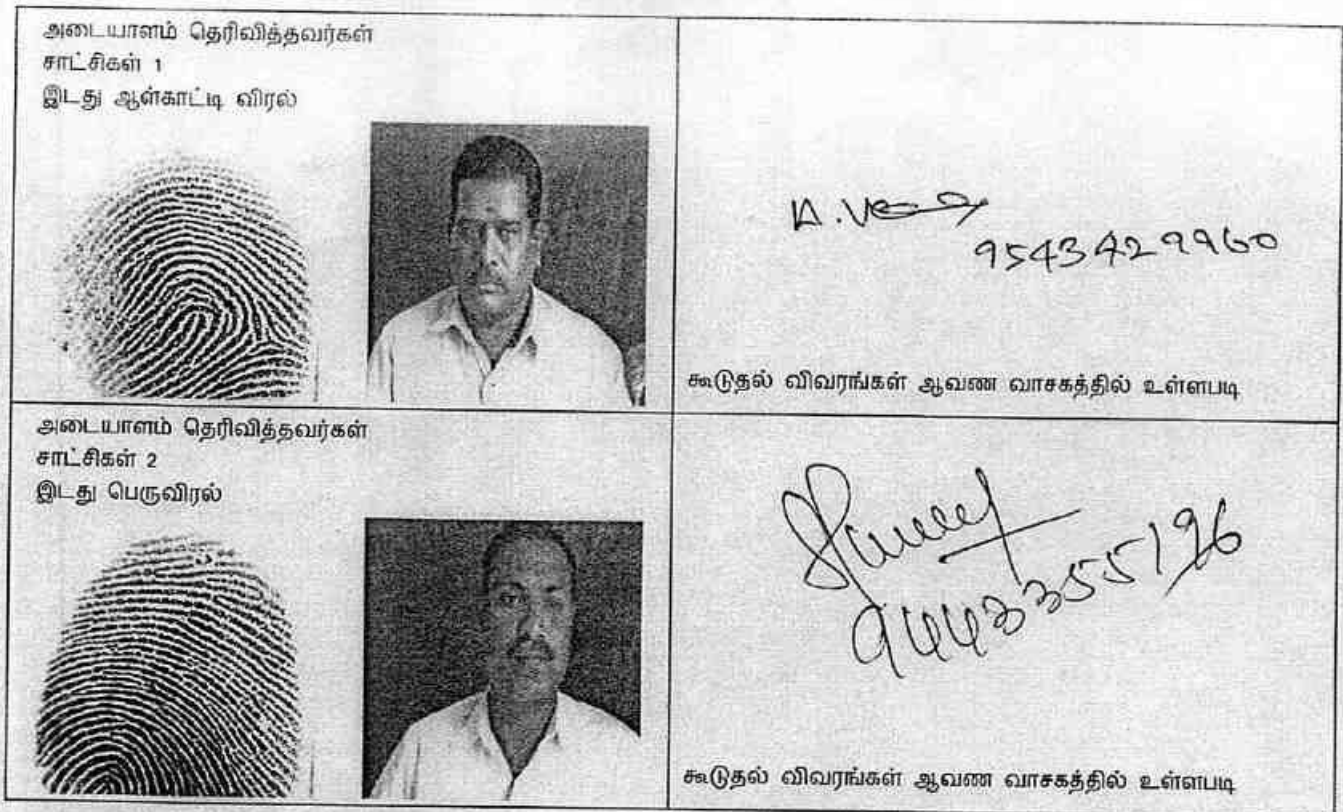 அடையாளம் தெரிவித்தவர்கள்
சாட்சிகள் 1
இடது ஆள்காட்டி விரல்
9543429960
கூடுதல் விவரங்கள் ஆவண வாசகத்தில் உள்ளபடி
அடையாளம் தெரிவித்தவர்கள்
சாட்சிகள் 2
இடது பெருவிரல்
9443355196
கூடுதல் விவரங்கள் ஆவண வாசகத்தில் உள்ளபடி